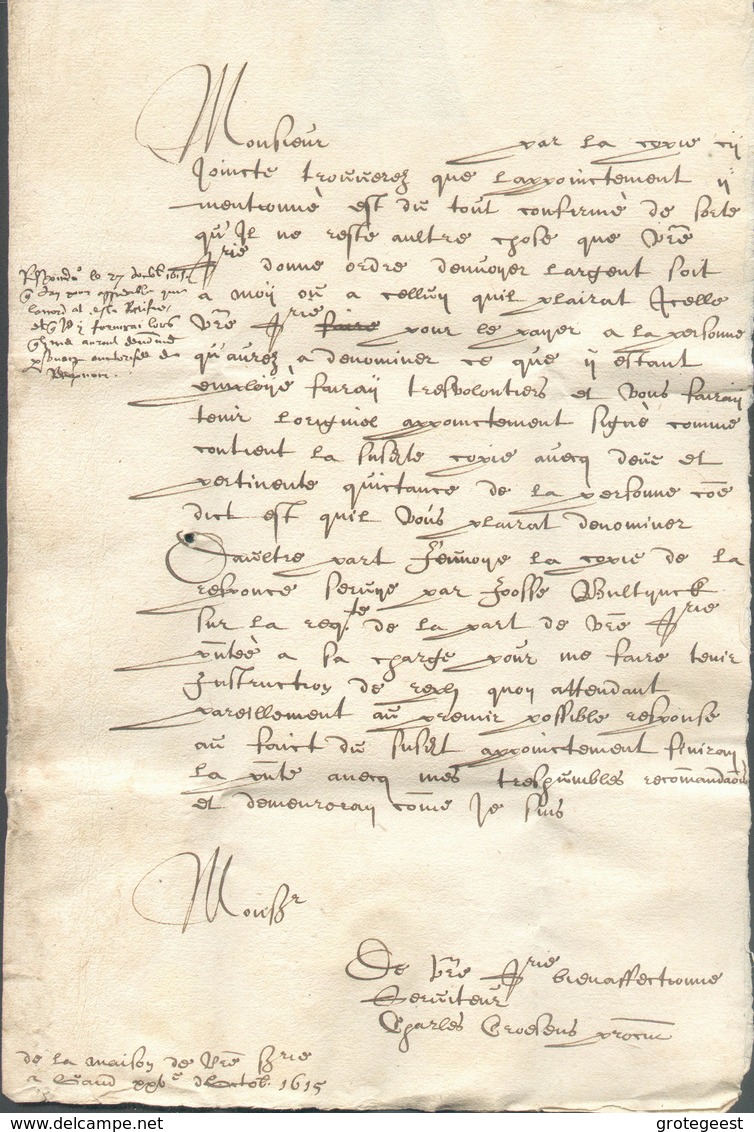 Monsieur par la copie cy
Joincte trouuerez que lappoinctement y
mentionné est du tout confirmé de sorte
qu'Il ne reste aultre chose que vre
Srie donne ordre denuoyer largent soit
a moy ou a celluy quil plairat Icelle
vre Srie faire pour le payer a la personne
qu'aurez a denominer ce que y estant
employé fairay tresvolontiers et vous fairay
tenir loriginel appoinctement signé comme
contient la susdte copie auecq deue et
pertinente quictance de la personne coe
dict est quil vous plairat denominer
Daultre part J'enuoye la copie de la
responce seruye par Joosse Bultynck
sur la reqte de la part de vre Srie
pntée a sa charge pour me faire tenir
Instruction de repli quoy attendant
pareillement au premier possible response
au faict du susdt appoinctement finiray
la pnte auecq mes treshumbles recomandaons
et demeureray come Je suis
Monsr
De vre Srie bienaffectionne
Seruiteur
Charles Croesens procur
Respondu le 27 doctob 1615
de la maison de vre Srie
a Gand xxve dOctob. 1615
www.delcampe.net
grotegeest